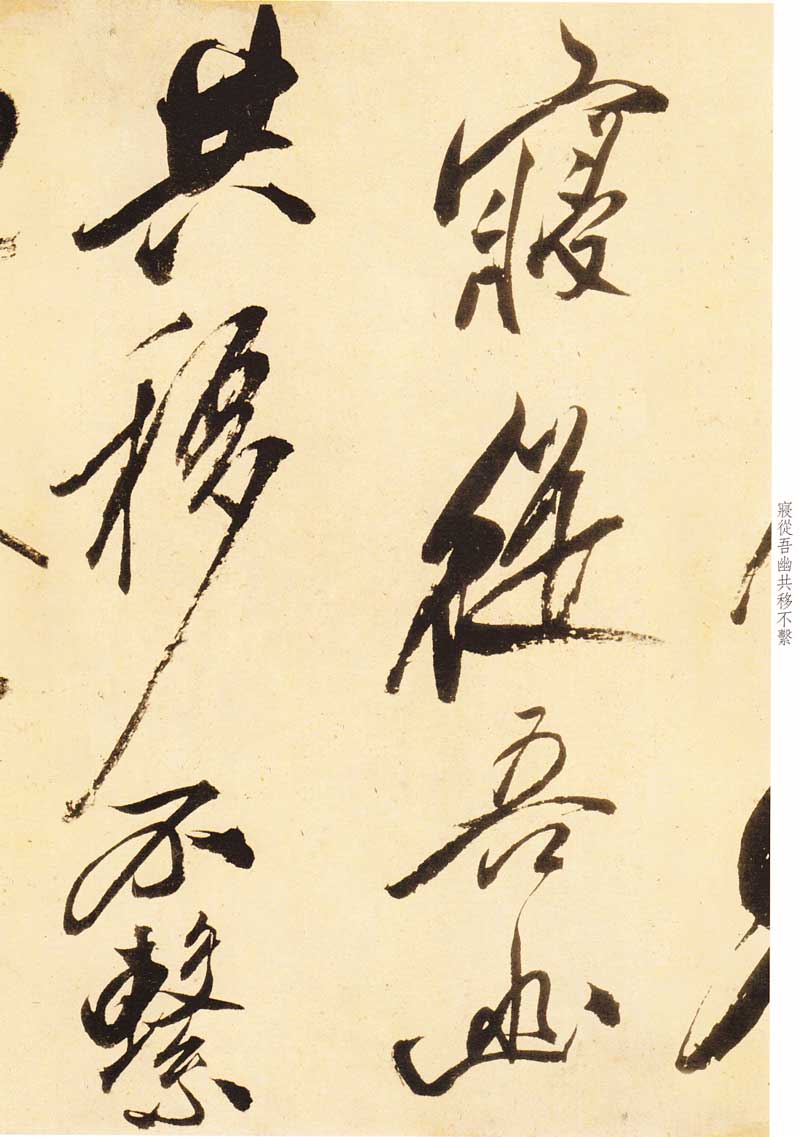 寢從吾幽
共移不繫
寢從吾幽共移不繫